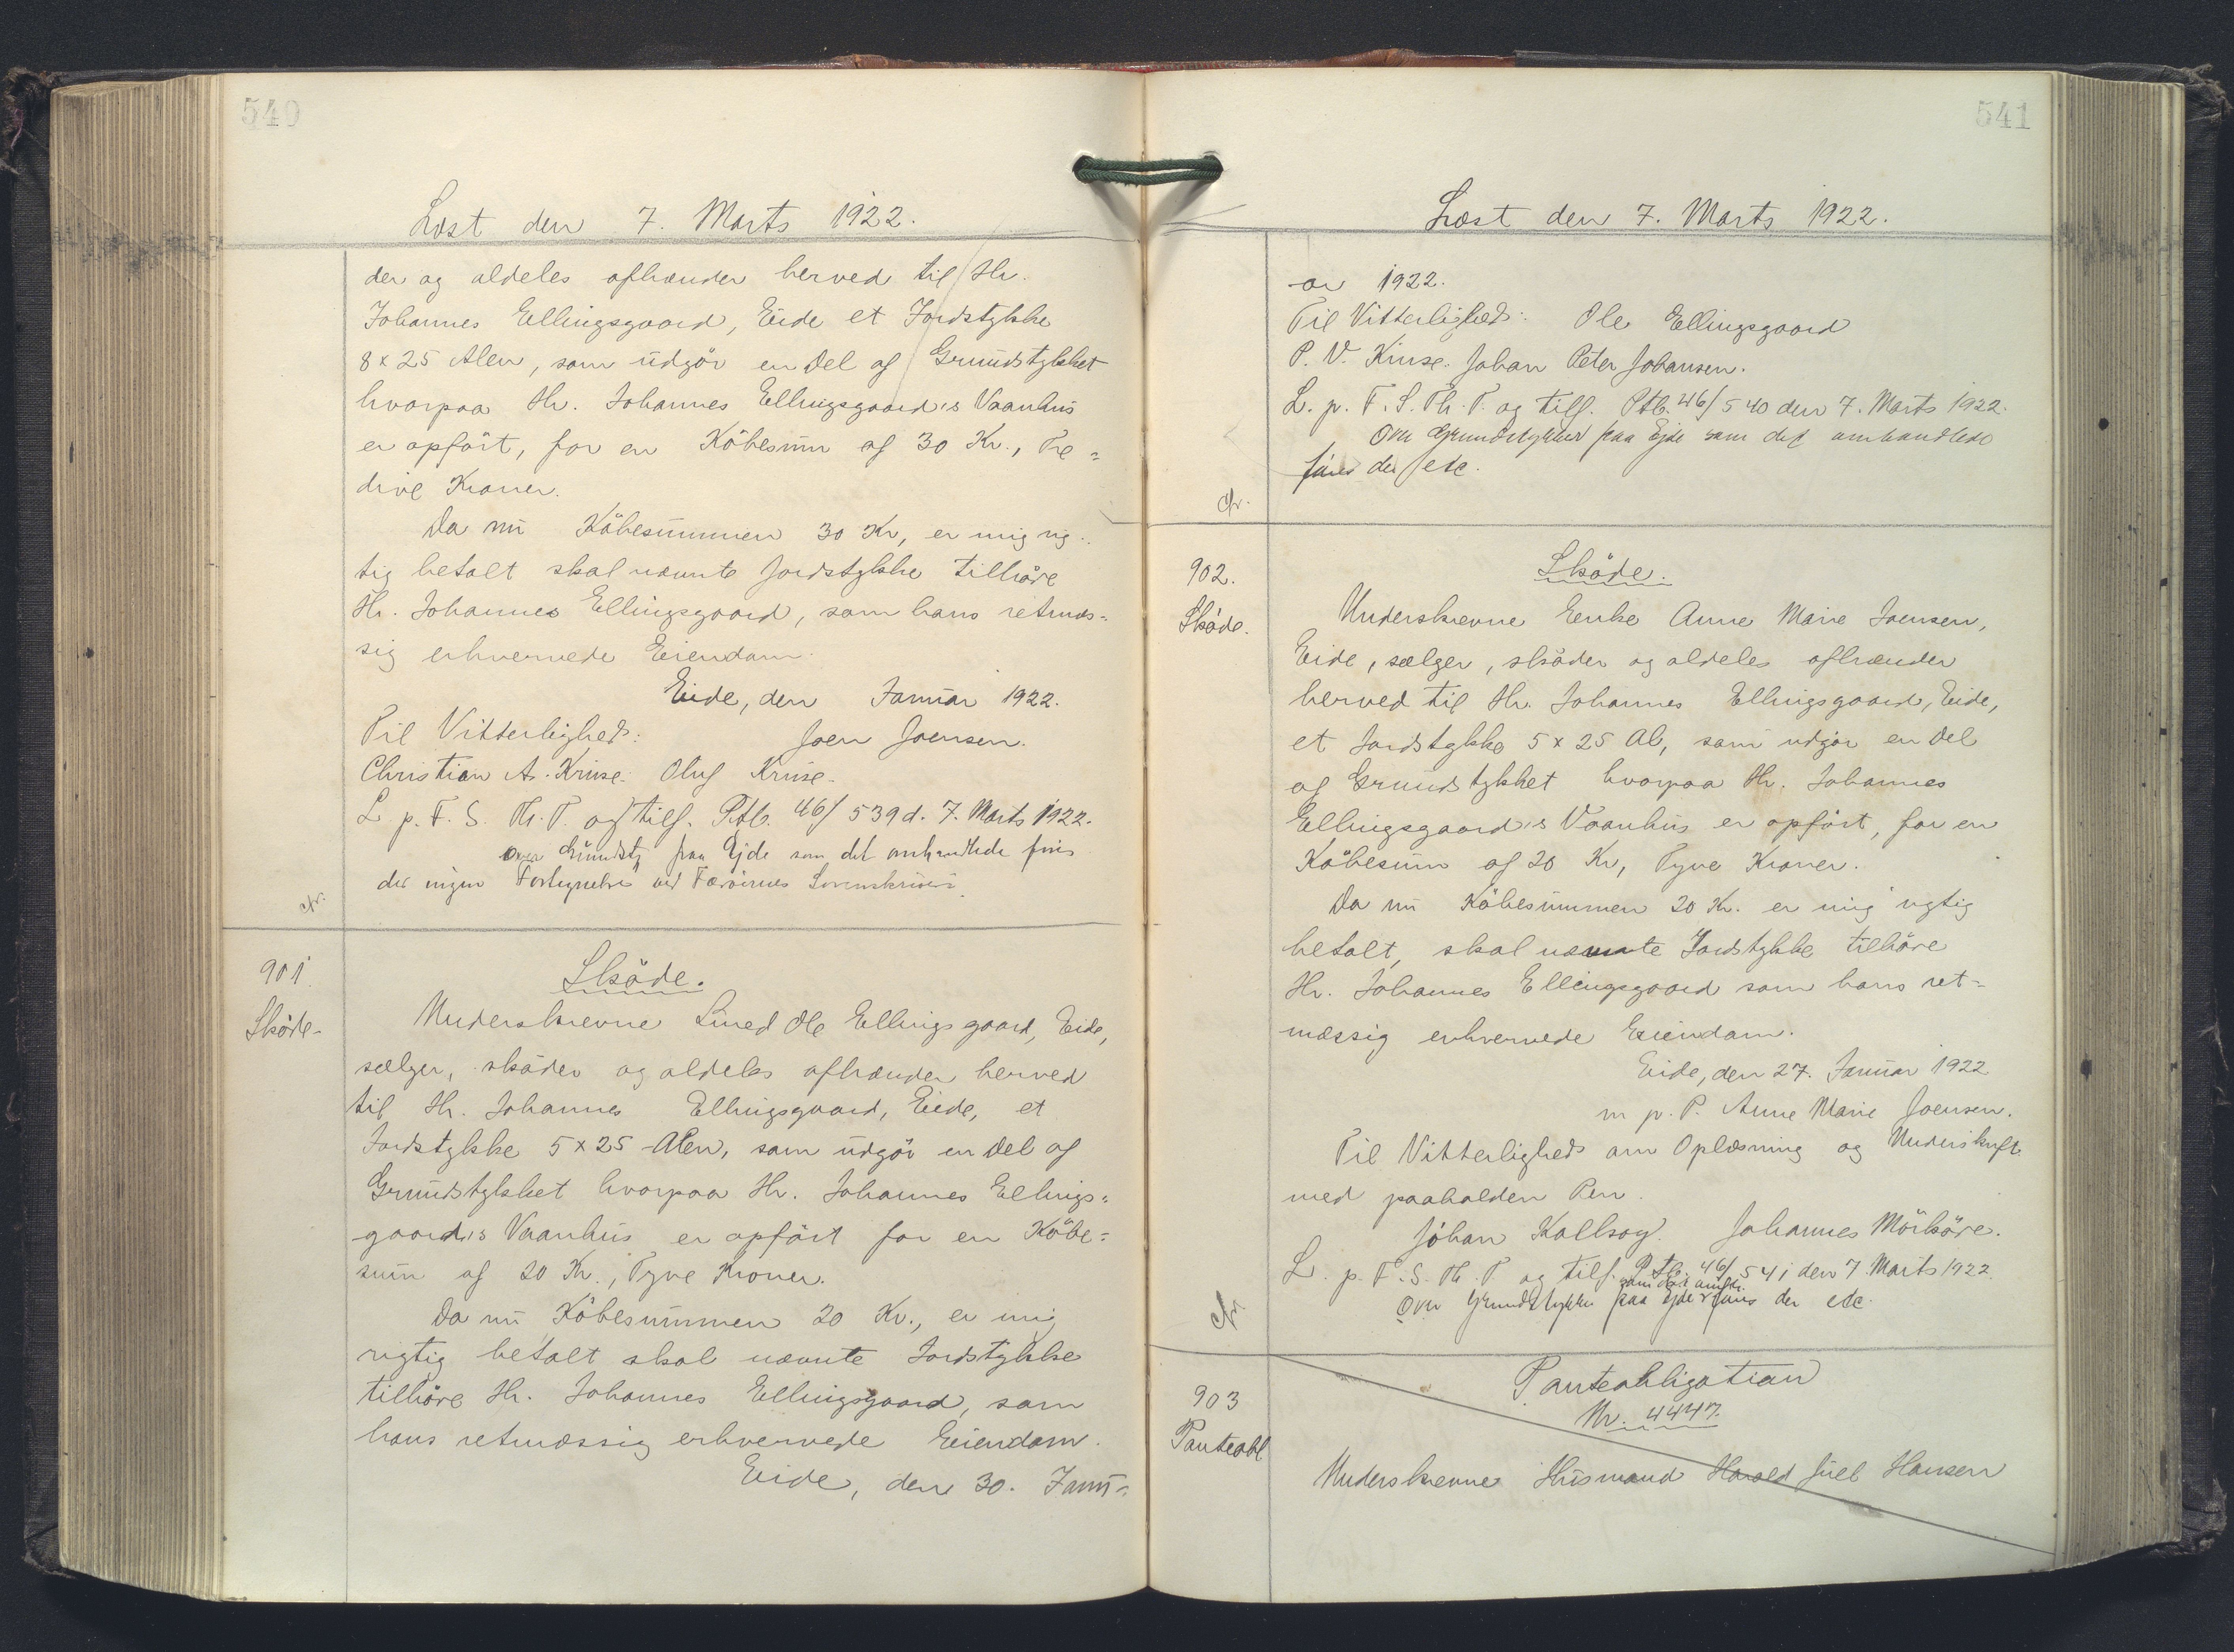 540
Læst den 7. Marts 1922.
der og aldeles afhænder herved til Hr.
Johannes Ellingsgaard, Eide et Jordstykke
8 x 25 Alen, som udgör en Del af Grundstykket
hvorpaa Hr. Johannes Ellingsgaard's Vaanhus
er opfört, for en Köbesum af 30 Kr., Tre=
dive Kroner.
Da nu Köbesummen 30 Kr, er mig rig-
tig betalt skal nævnte Jordstykke tilhöre
Hr. Johannes Ellingsgaard, som hans retmæs=
sig erhvervede Eiendom.
Eide, den Januar 1922.
Til Vitterlighed: Joen Joensen.
Christian A. Kruse. Oluf Kruse.
L. p. F. S. Th. T. og tilf. Ptb. 46/539 d. 7. Marts 1922.
Over Grundst. paa Ejde som det omhandlede fins
der ingen Fortegnelse ved Færöernes Sorenskriveri.
cfr.
901.
Sköde.
Sköde.
Underskrevne Smed Ole Ellingsgaard, Eide,
sælger, sköder og aldeles afhænder herved
til Hr. Johannes Ellingsgaard, Eide, et
Jordstykke 5 x 25 Alen, som udgör en Del af
Grundstykket hvorpaa Hr. Johannes Ellings=
gaard's Vaanhus er opfört for en Köbe=
sum af 20 Kr., Tyve Kroner.
Da nu Köbesummen 20 Kr., er mig
rigtig betalt skal nævnte Jordstykke
tilhöre Hr. Johannes Ellingsgaard, som
hans retmæssig erhvervede Eiendom.
Eide, den 30. Janu-
541
Læst den 7. Marts 1922.
ar 1922.
Til Vitterlighed: Ole Ellingsgaard
P. V. Kruse. Johan Peter Johansen.
L. p. F. S. Th. T. og tilf. Ptb. 46/540 den 7. Marts 1922.
Over Grundstykker paa Ejde som det omhandlede
fins der etc.
cfr.
902.
Sköde.
Sköde.
Underskrevne Enke Anne Marie Joensen,
Eide, sælger, sköder og aldeles afhænder
herved til Hr. Johannes Ellingsgaard, Eide,
et Jordstykke 5 x 25 Al, som udgör en Del
af Grundstykket hvorpaa Hr. Johannes
Ellingsgaard's Vaanhus er opfört, for en
Köbesum af 20 Kr, Tyve Kroner.
Da nu Köbesummen 20 Kr. er mig rigtig
betalt, skal nævnte Jordstykke tilhöre
Hr. Johannes Ellingsgaard som hans ret=
mæssig erhvervede Eiendom.
Eide, den 27. Januar 1922
m. p. P. Anne Marie Joensen.
Til Vitterlighed om Oplæsning og Underskrift
med paaholden Pen.
Jóhan Kallsoy. Johannes Mörköre.
L. p. F. S. Th. T. og tilf. Ptb. 46/541 den 7 Marts 1922.
som det omh.
Over Grundstykker paa Ejde fins der etc.
cfr.
903
Panteobl
Panteobligation
Nr. 4447.
Underskrevne Husmand Harald Juel Hansen